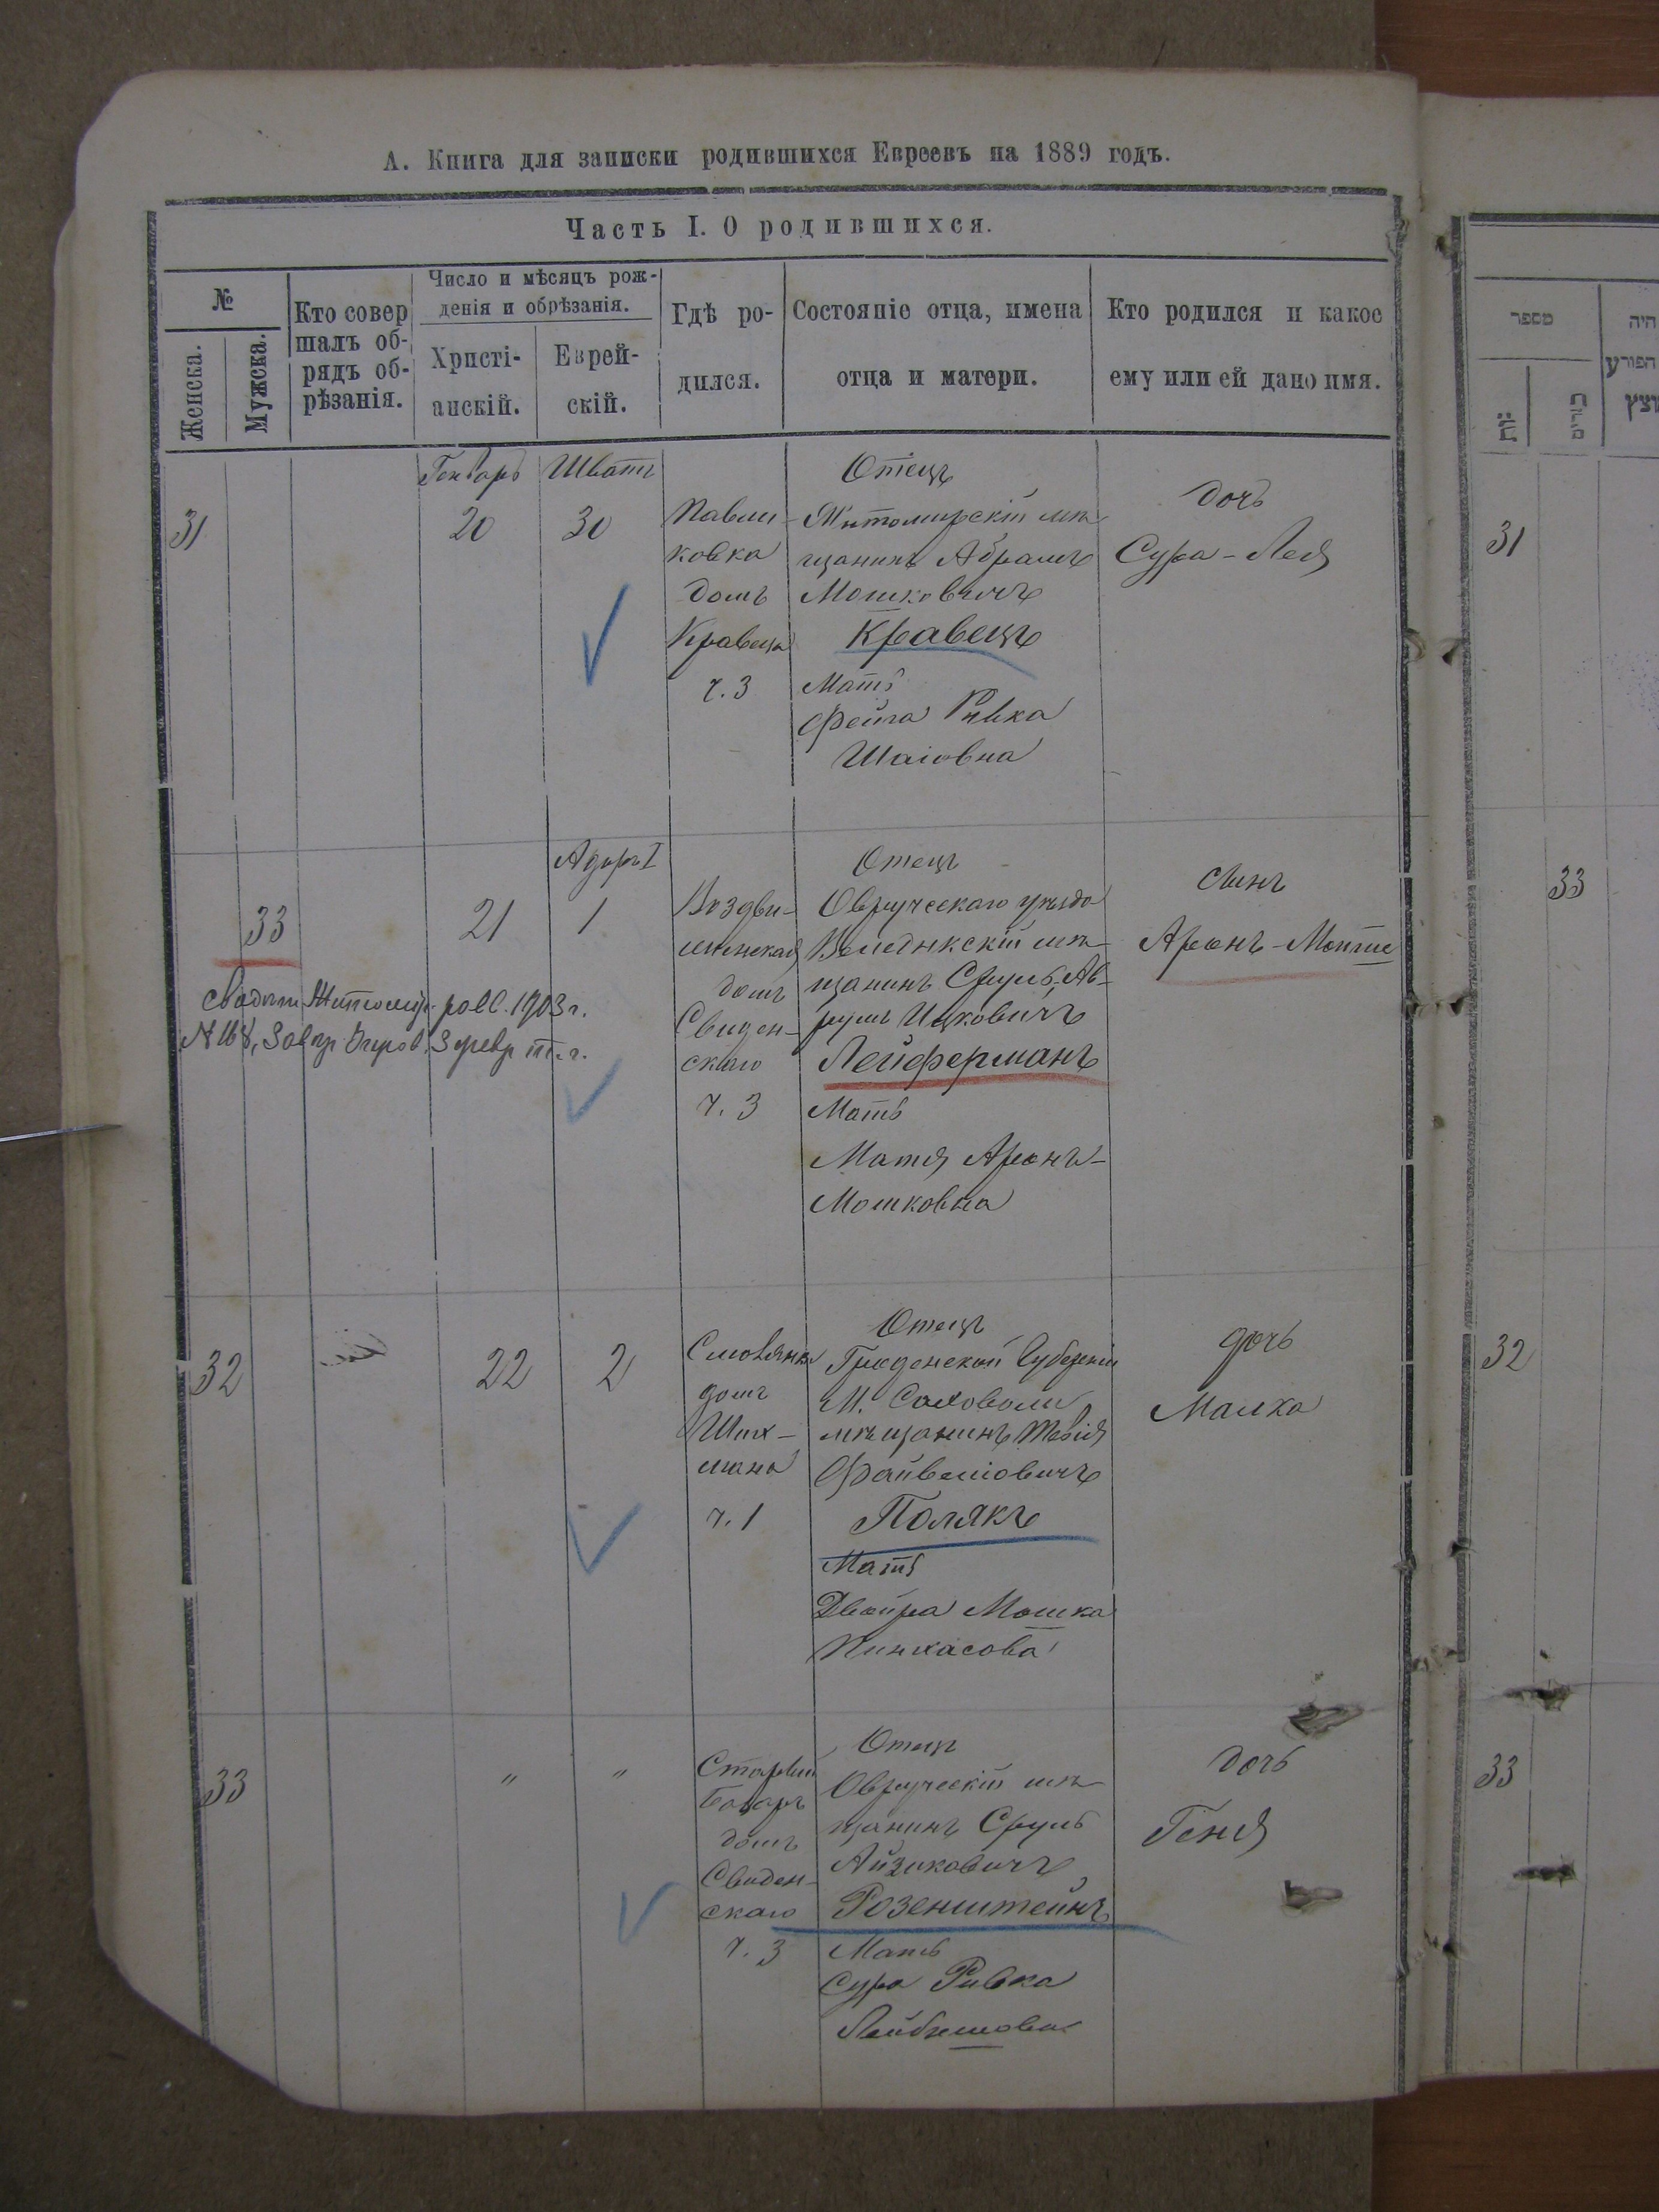 А. Книга для записки родившихся Евреевъ на 1889 годъ.
Часть I. О родившихся.
№
Женска.
Мужска.
Кто совер
шалъ об-
рядъ об-
рѣзанія.
Число и мѣсяцъ рож-
денія и обрѣзанія.
Христі-
анскій.
Еврей-
скій.
Гдѣ ро-
дился.
Состояніе отца, имена
отца и матери.
Кто родился и какое
ему или ей дано имя.
31
Генварь
20
Шватъ
30
Павли-
ковка
домъ
Кравеца
ч. 3
Отецъ
Житомирскій мѣ-
щанинъ Абрамъ
Мошковичъ
Кравецъ
Мать
Фейга Ривка
Шаіовна
дочь
Сура-Лея
33
21
Адаръ I
1
Воздви-
женская
домъ
Свиден-
скаго
ч. 3
Отецъ
Овручскаго уѣзда
мѣ-
щанинъ Сруль-Ав-
румъ Ицковичъ
Лейферманъ
Мать
Матя Аронъ-
Мошковна
сынъ
Аронъ-Мотте
1903 г.
32
22
2
домъ
Ших-
мана
ч. 1
Отецъ
Гродненской Губерніи
М.
мѣщанинъ Тевія
Файвелювичъ
Полякъ
Мать
Двойра Мошка
Пинхасова
дочь
Малка
33
"
"
Старый
Базаръ
домъ
Свиден-
скаго
ч. 3
Отецъ
Овручскій мѣ-
щанинъ Сруль
Айзиковичъ
Розенштейнъ
Мать
Сура Ривка
дочь
Геня
מספר
היה
הפורע
31
33
32
33